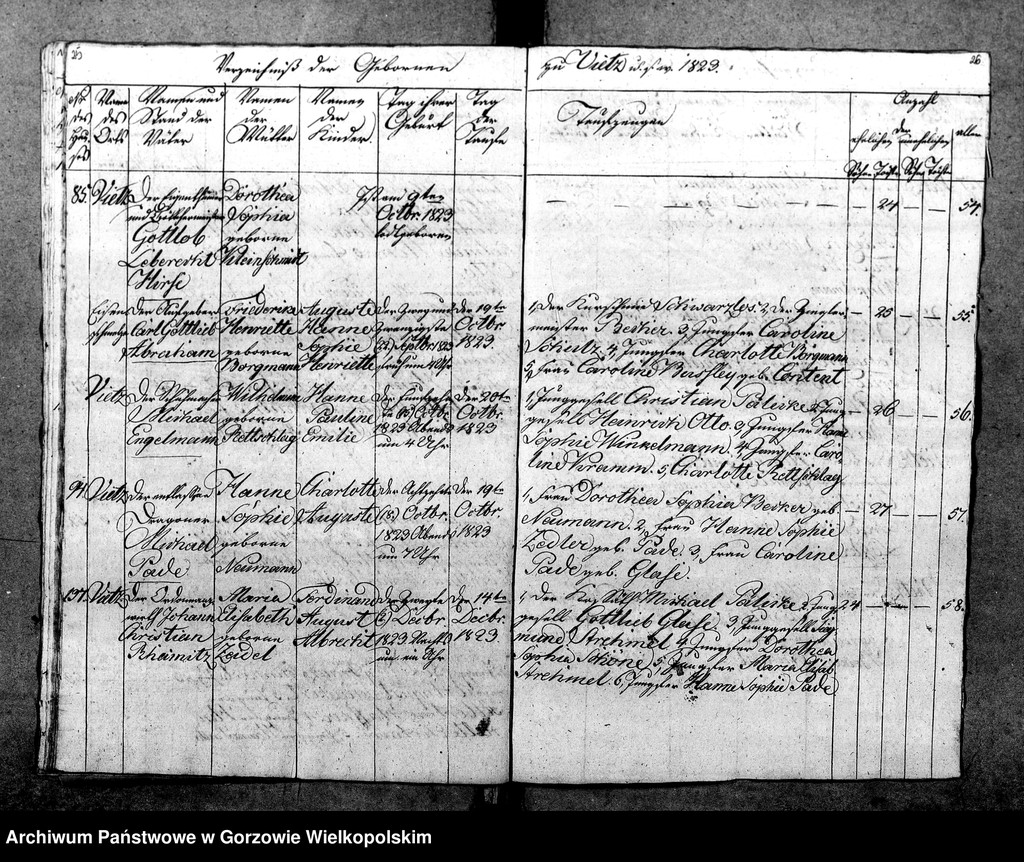 26
Verzeichniß der Gebornen
zu Vietz u.s.w. 1823.
26
No des Hauses
Name des Orts
Namen und Stand der Väter
Namen der Mütter
Namen der Kinder.
Tag ihrer Geburt
Tag der Taufe
Taufzeugen
Anzahl
der
ehelichen
unehelichen
aller
Söhne Töchter Söhne Töchter
85. Vietz
Der Eigenthümer
und
Gottlob
Leberecht
Hirse
Dorothea
Sophia
geborne
Kleinschmidt
Ist am 9ten
Octbr. 1823
todtgeboren
— 24 — — 54.
Der
Carl Gottlieb
Abraham
Friederika
Henriette
geborne
Borgmann
Auguste
Hanne
Sophie
Henriette
Der zwey und
zwanzigste
(22) Septbr. 1823
früh um 4 Uhr
Der 19te
Octbr.
1823.
1, Der Schwarzlos. 2, der
meister Becker 3, Jungfer Caroline
Schulz 4, Jungfer Charlotte Borgmann
5, Frau Caroline geb. Content
— 25 — — 55.
Vietz
Der
Michael
Engelmann
Wilhelmine
geborne
Rettschlag
Hanne
Pauline
Emilie
Der
Octbr.
1823 Abends
um 4 Uhr
Der 20te
Octbr.
1823
1, Junggesell Christian Paliske 2, Jung-
gesell Heinrich Otto. 3, Jungfer Hanne
Sophie Winkelmann. 4, Jungfer Caro-
line Kramm. 5, Charlotte Rettschlag
— 26 — — 56.
91. Vietz
Der
Dragoner
Michael
Pade
Hanne
Sophie
geborne
Neumann
Charlotte
Auguste
Der Achtzehnte
(18) Octbr.
1823 Abends
um 7 Uhr
Der 19te
Octbr.
1823
1, Frau Dorothea Sophia Becker geb.
Neumann. 2, Frau Hanne Sophie
Zedler geb. Pade. 3, Frau Caroline
Pade geb. Glase.
— 27 — — 57.
137. Vietz
Der
Johann
Christian
Maria
Elisabeth
geborne
Zeidel
Ferdinand
August
Albrecht
Der Zweyte
(2) Decbr.
1823
um ein Uhr
Der 14te
Decbr.
1823
1, Der Michael Paliske 2, Jung-
gesell Gottlieb Glase. 3, Junggesell Sig-
mund Strehmel 4, Jungfer Dorothea
Sophia Schöne. 5, Jungfer Maria Elisab.
Strehmel. 6, Jungfer Hanne Sophie Pade
24 — — — 58.
Archiwum Państwowe w Gorzowie Wielkopolskim